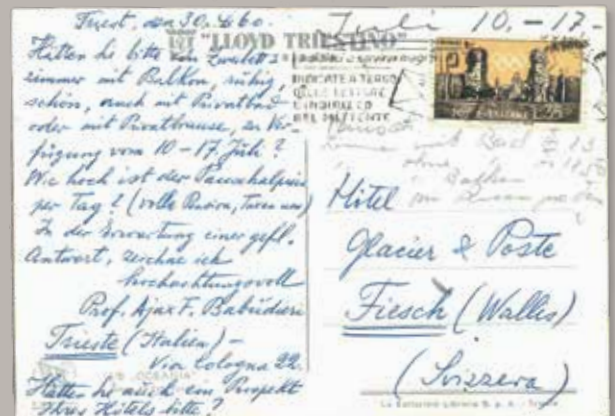 Triest, den 30.4.60.
"LLOYD TRIESTINO"
Hätten Sie bitte ein Zweibett=
zimmer mit Balkon, ruhig,
schön, auch mit Privatbad
oder mit Privatbrause, zu Ver-
fügung vom 10-17 Juli?
Wie hoch ist der Pauschalpreis
per Tag? (volle Pension, Taxen usw)
In der Erwartung einer gefl.
Antwort, zeichne ich
hochachtungsvoll
Prof. Ajax F. Babudieri
Trieste (Italien) -
Via Cologna 22.
Hätten Sie auch ein Prospekt
Ihres Hôtels bitte?
Juli 10.-17-
INDICATE A TERGO
DELLE LETTERE
L'INDIRIZZO
DEL MITTENTE
L. 25
mit Bad
ohne
Balkon
Hôtel
Glacier & Poste
Fiesch (Wallis)
(Svizzera)